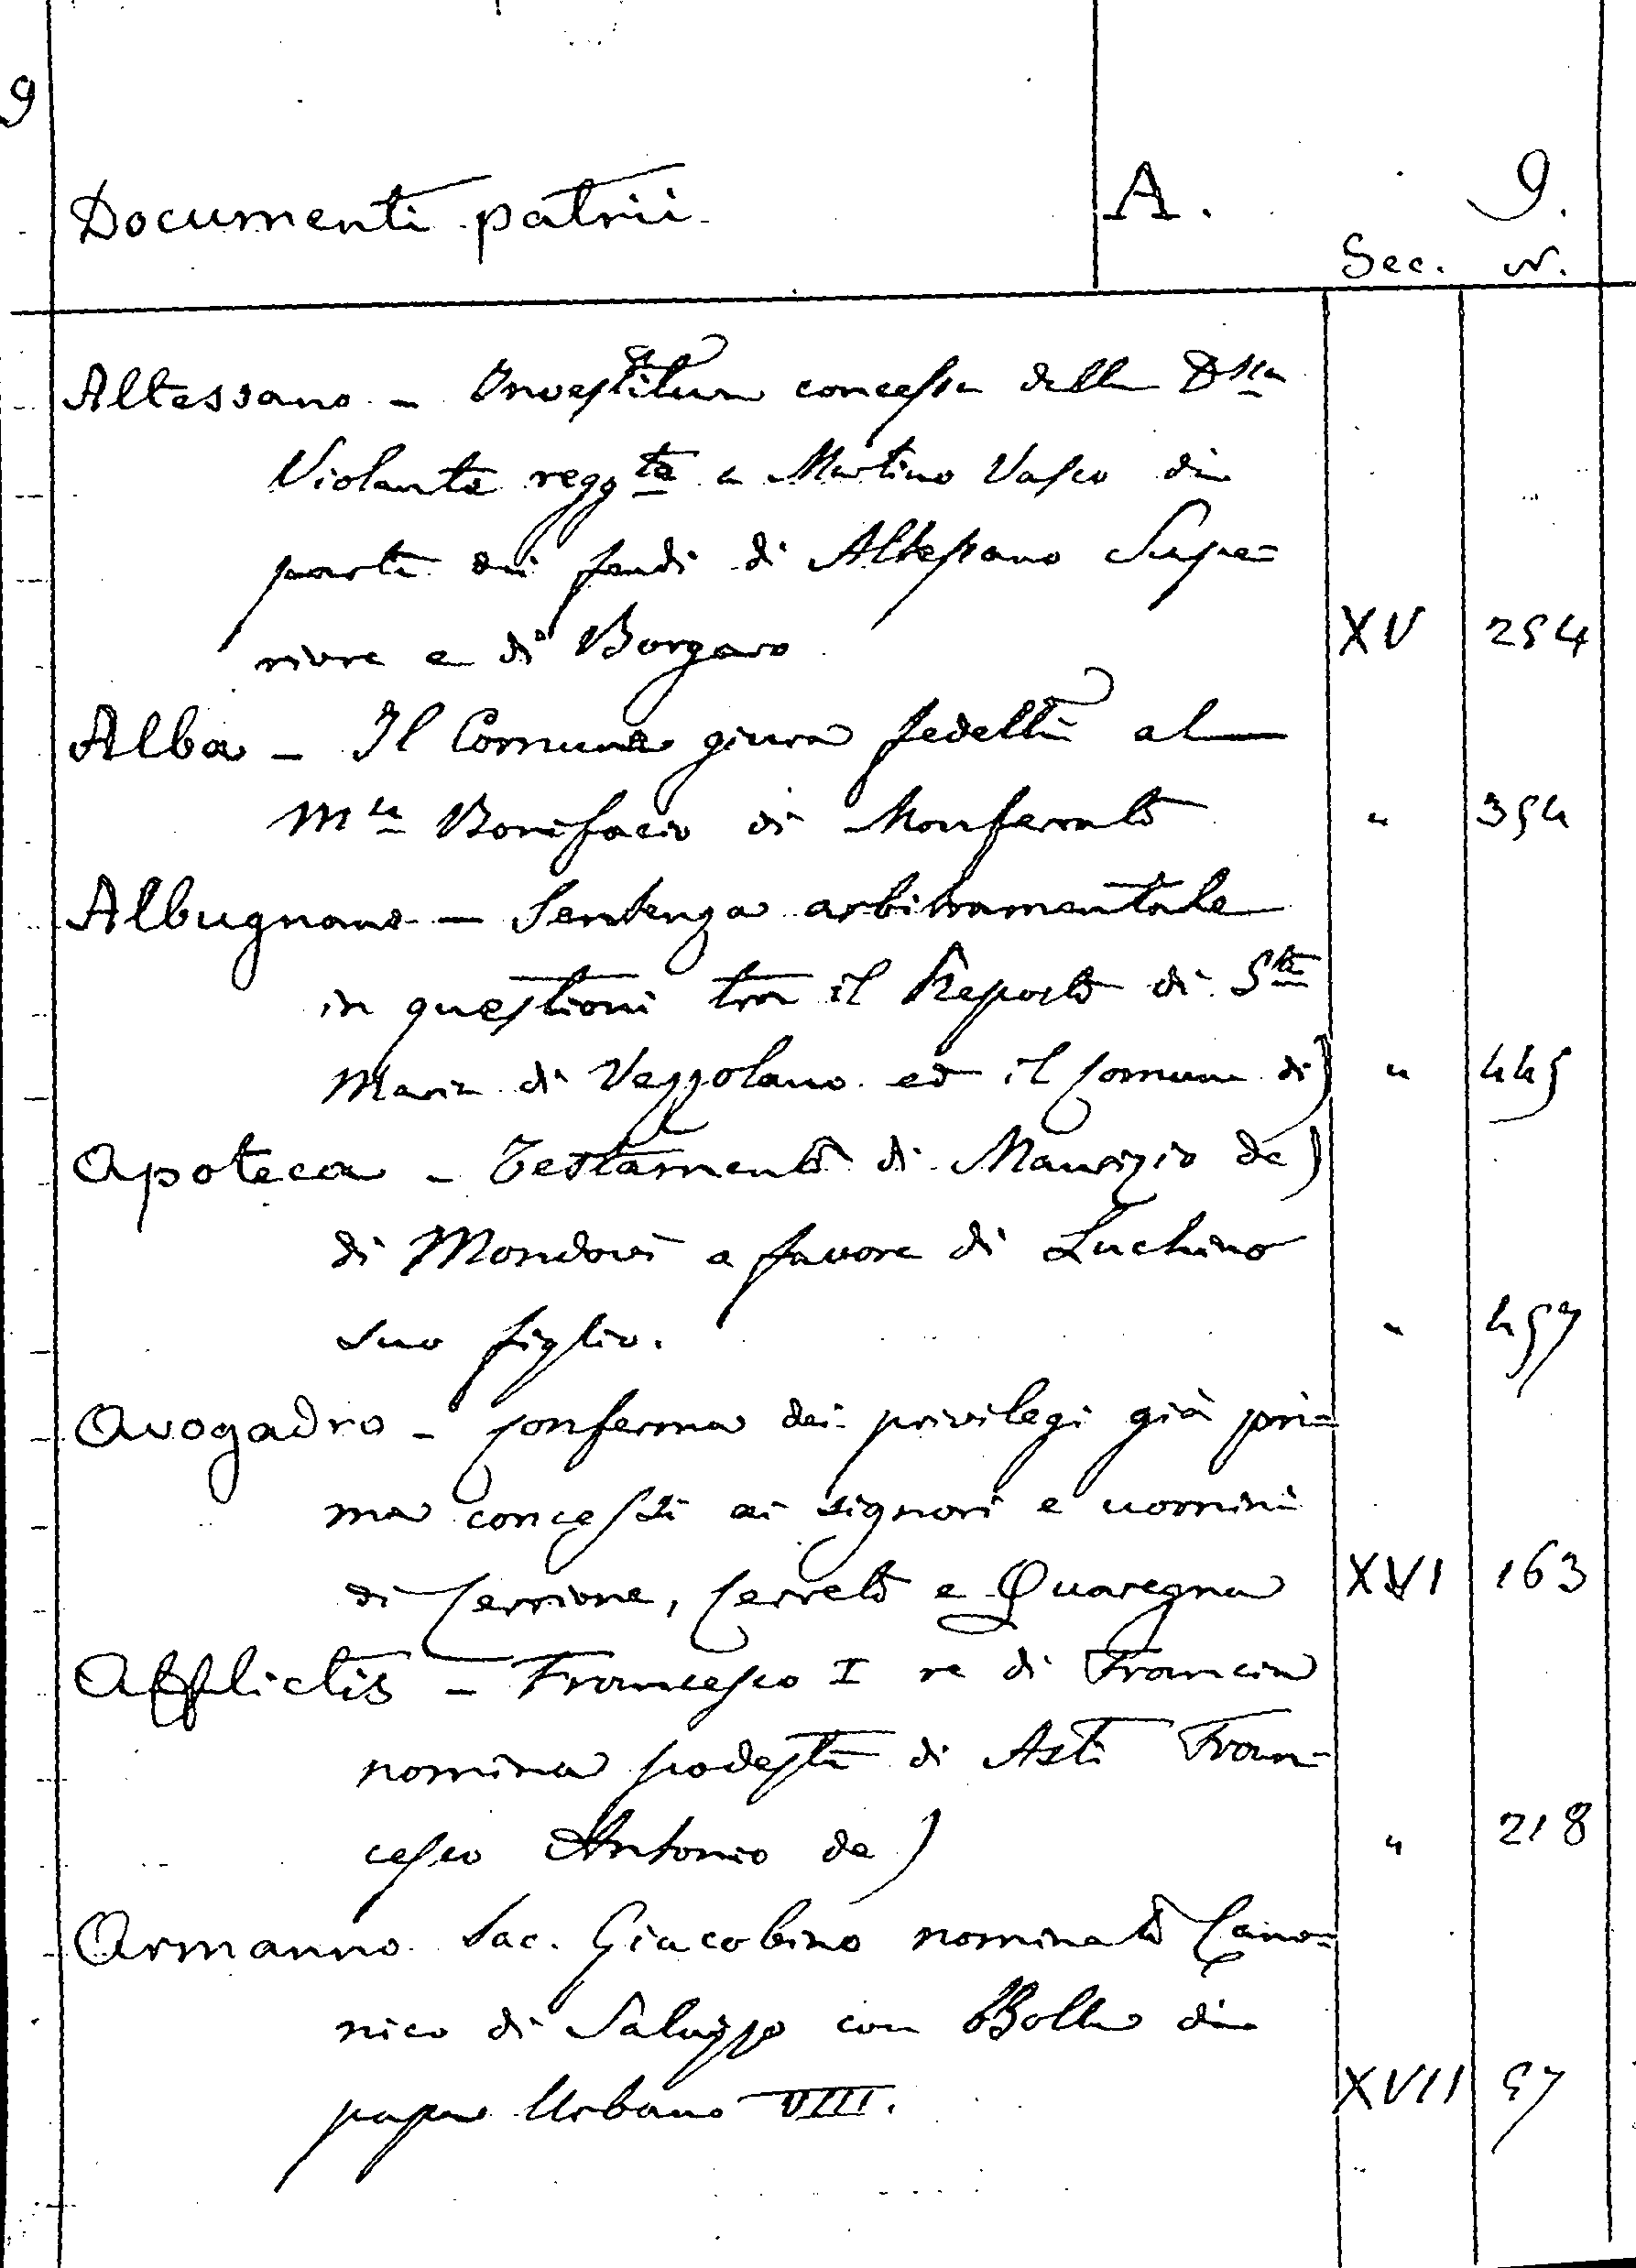 9
Documenti patrii. A. 9.
Sec. N.
Altessano - Investitura concessa dalla Dssa
Violante reggte a Martino Vasco di
parte dei feudi di Altessano Supe=
riore e di Borgaro XV 254
Alba - Il Comune giura fedeltà al
Mse Bonifacio di Monferrato " 354
Albugnano - Sentenza arbitramentale
in questioni tra il Preposto di Sta
Maria di Vezzolano ed il Comune di) " 445
Apoteca - Testamento di Maurizio de)
di Mondovì a favore di Luchino
suo figlio. " 457
Avogadro - Conferma dei privilegi già pri=
ma concessi ai signori e uomini
di Cerrione, Cerreto e Quaregna XVI 163
Afflictis - Francesco I re di Francia
nomina podestà di Asti Fran=
cesco Antonio de) " 218
Armanno Sac. Giacobino nominato Cano=
nico di Saluzzo con Bolla di
papa Urbano VIII. XVII 57